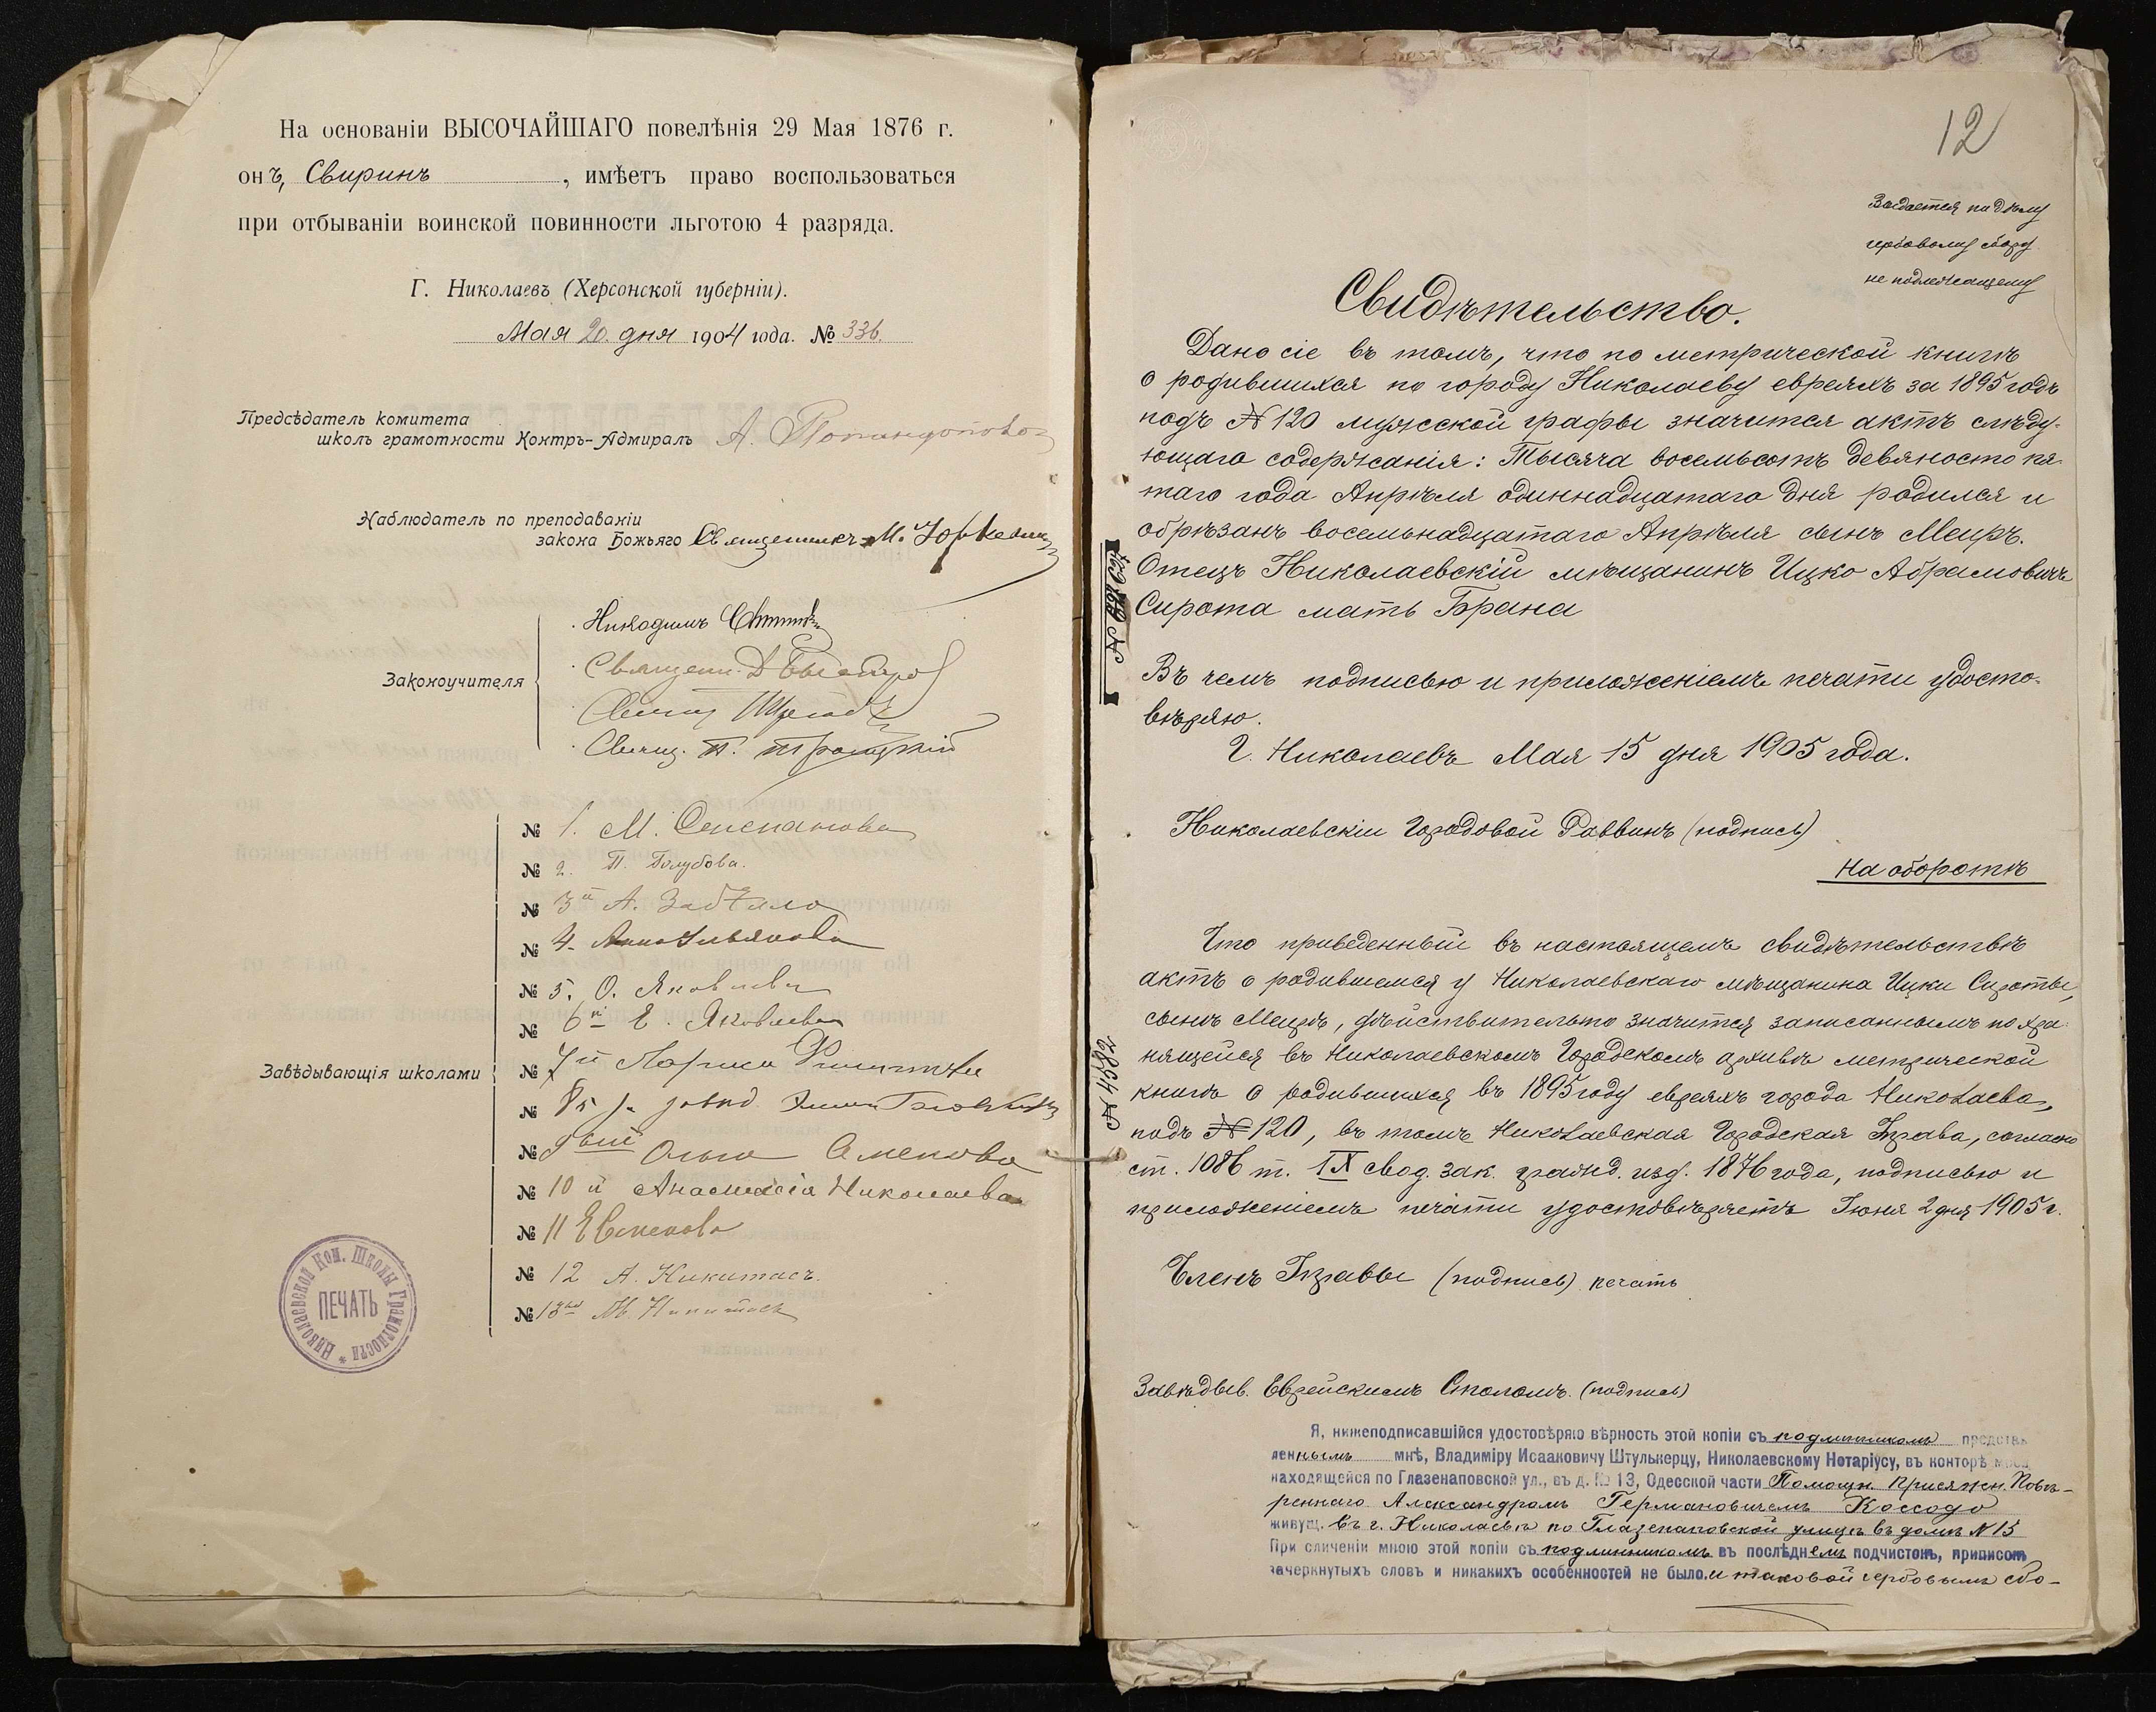 На основаніи ВЫСОЧАЙШАГО повелѣнія 29 Мая 1876 г.
онъ, Свиринъ, имѣетъ право воспользоваться
при отбываніи воинской повинности льготою 4 разряда.
Г. Николаевъ (Херсонской губерніи).
Мая 20. дня 1904 года. № 336.
Предсѣдатель комитета
школъ грамотности Контръ-Адмиралъ А.
Наблюдатель по преподаванію
закона Божьяго Священникъ М.
Законоучителя
Никодимъ
Священ. Д.
Свящ. П. Троицкій
Завѣдывающія школами
№ 1. М. Степанова
№ 2. П. Голубова.
№ 3й А. Забѣлло
№ 4. Анна Ульянова
№ 5. О. Яковлева
№ 6й Е. Яковлева
№ 7й Лариса
№ 8
№ 9 Ольга Семенова
№ 10й Анастасія Николаева
№ 11 Е Семенова
№ 12 А. Никитасъ.
№ 13 М. Никитасъ
Николаевской Ком. Школы Грамотности *
ПЕЧАТЬ
12
Выдается по дѣлу
гербовому сбору
не подлежащему
Свидѣтельство.
Дано сіе въ томъ, что по метрической книгѣ
о родившихся по городу Николаеву евреяхъ за 1895 годъ
подъ № 120 мужской графы значится актъ слѣду-
ющаго содержанія: Тысяча восемьсотъ девяносто пя-
таго года Апрѣля одиннадцатаго дня родился и
обрѣзанъ восемьнадцатаго Апрѣля сынъ Меиръ.
Отецъ Николаевскій мѣщанинъ Ицко Абрамовичъ
Сирота мать Брана
Въ чемъ подписью и приложеніемъ печати удосто-
вѣряю.
Г. Николаевъ Мая 15 дня 1905 года.
Николаевскій Городовой Раввинъ (подпись)
На оборотѣ
Что приведенный въ настоящемъ свидѣтельствѣ
актъ о родившемся у Николаевскаго мѣщанина Ицки Сироты,
сынъ Меиръ, дѣйствительно значится записаннымъ по хра-
нящейся въ Николаевскомъ Городскомъ архивѣ метрической
книгѣ о родившихся въ 1895 году евреяхъ города Николаева,
подъ № 120, въ томъ Николаевская Городская Управа, согласно
ст. 1086 т. IX свод. зак. гражд. изд. 1876 года, подписью и
приложеніемъ печати удостовѣряетъ Іюня 2 дня 1905 г.
Членъ Управы (подпись) печать
Завѣдыв. Еврейскимъ Столомъ. (подпись)
№ 4582
Я, нижеподписавшійся удостовѣряю вѣрность этой копіи съ подлинникомъ представ
леннымъ мнѣ, Владиміру Исааковичу Штулькерцу, Николаевскому Нотаріусу, въ конторѣ моей
находящейся по Глазенаповской ул., въ д. № 13, Одесской части Помощн. Присяжн. Повѣ-
реннаго Александромъ Германовичемъ Коссодо
живущ. въ г. Николаевѣ по Глазенаповской улицѣ въ домѣ № 15
При сличеніи мною этой копіи съ подлинникомъ въ послѣднемъ подчистокъ, приписокъ
зачеркнутыхъ словъ и никакихъ особенностей не было. и таковой гербовымъ сбо-